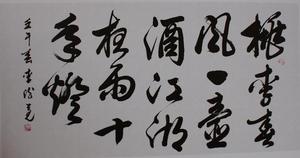 桃李春
風一壺
酒江湖
夜雨十
年燈
壬午春